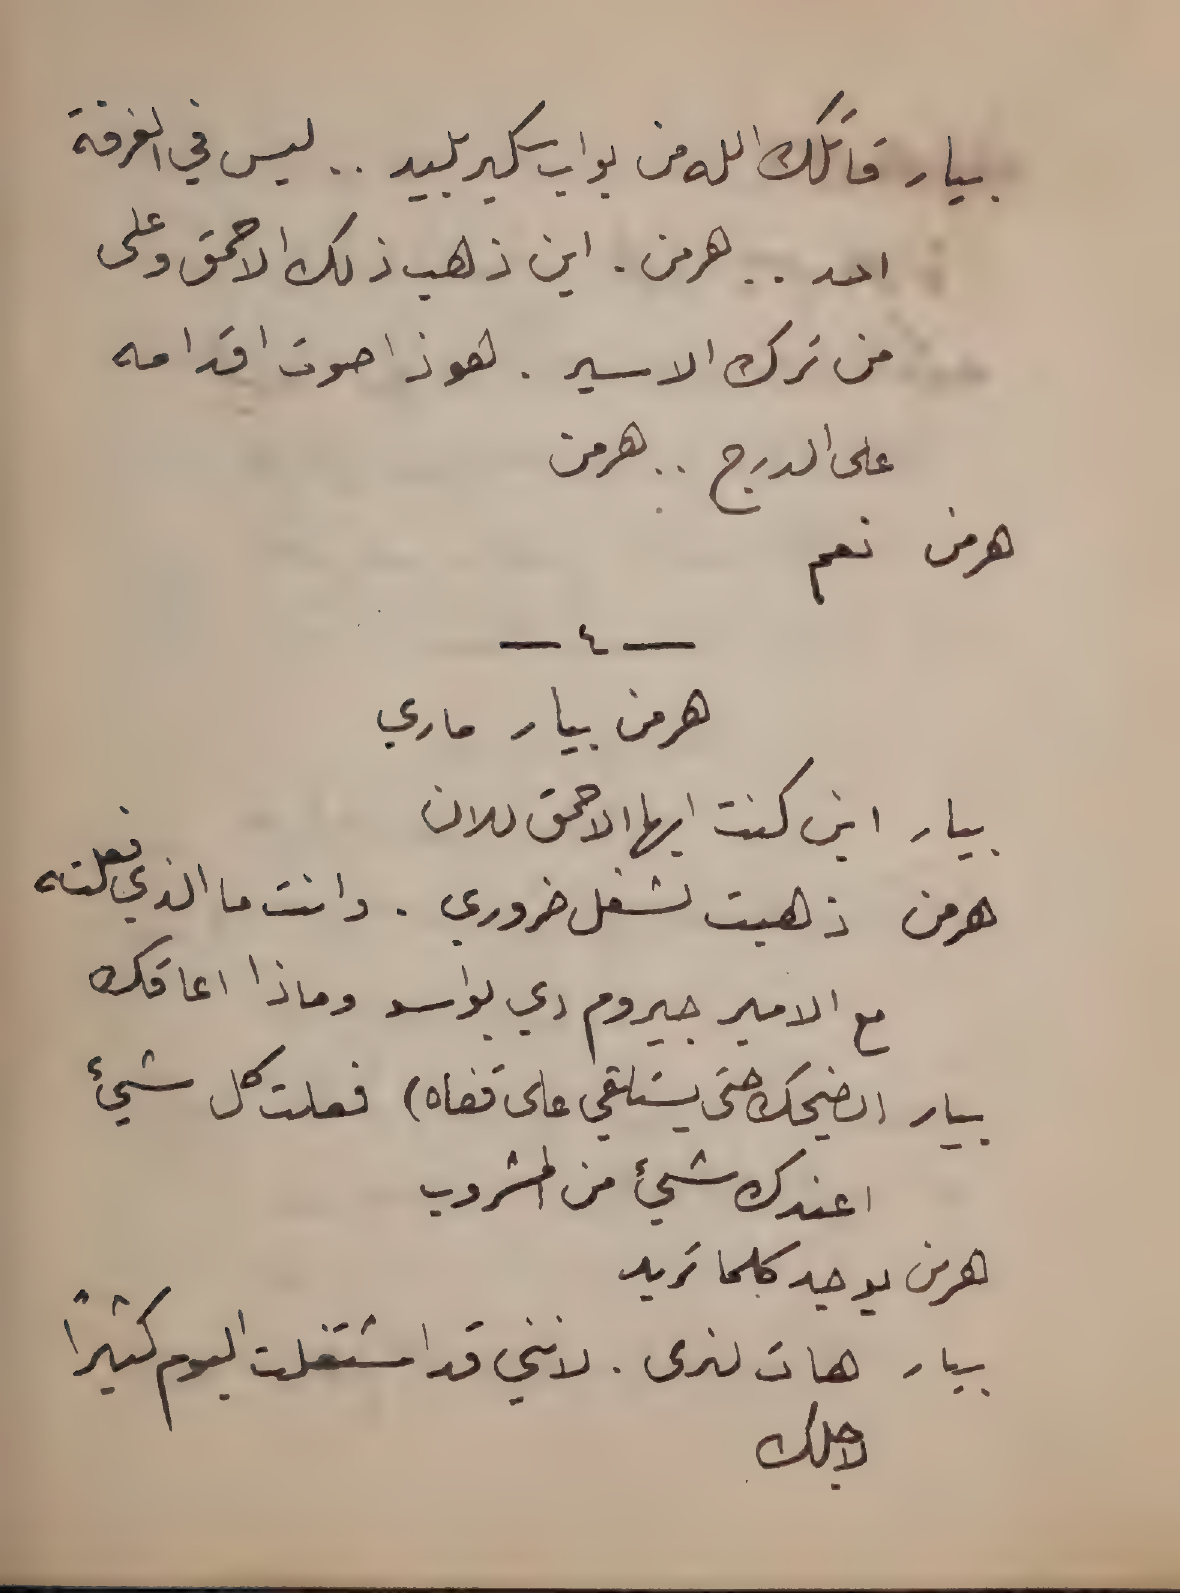 بيار قاتلك الله من بواب سكير بليد .. ليس في الغرفة
احد .. هرمن . اين ذهب ذلك الاحمق وعلى
من ترك الاسير . هوذا صوت اقدامه
على الدرج .. هرمن
هرمن نعم
— ٤ —
هرمن بيار ماري
بيار اين كنت ايها الاحمق للان
هرمن ذهبت لشغل ضروري . وانت ما الذي فعلته
مع الامير جيروم دي بواسو وماذا اعاقك
بيار (يضحك حتى يستلقي على قفاه) فعلت كل شيئ
اعندك شيئ من المشروب
هرمن يوجد كلما تريد
بيار هات لنرى . لانني قد اشتغلت اليوم كثيراً
لاجلك